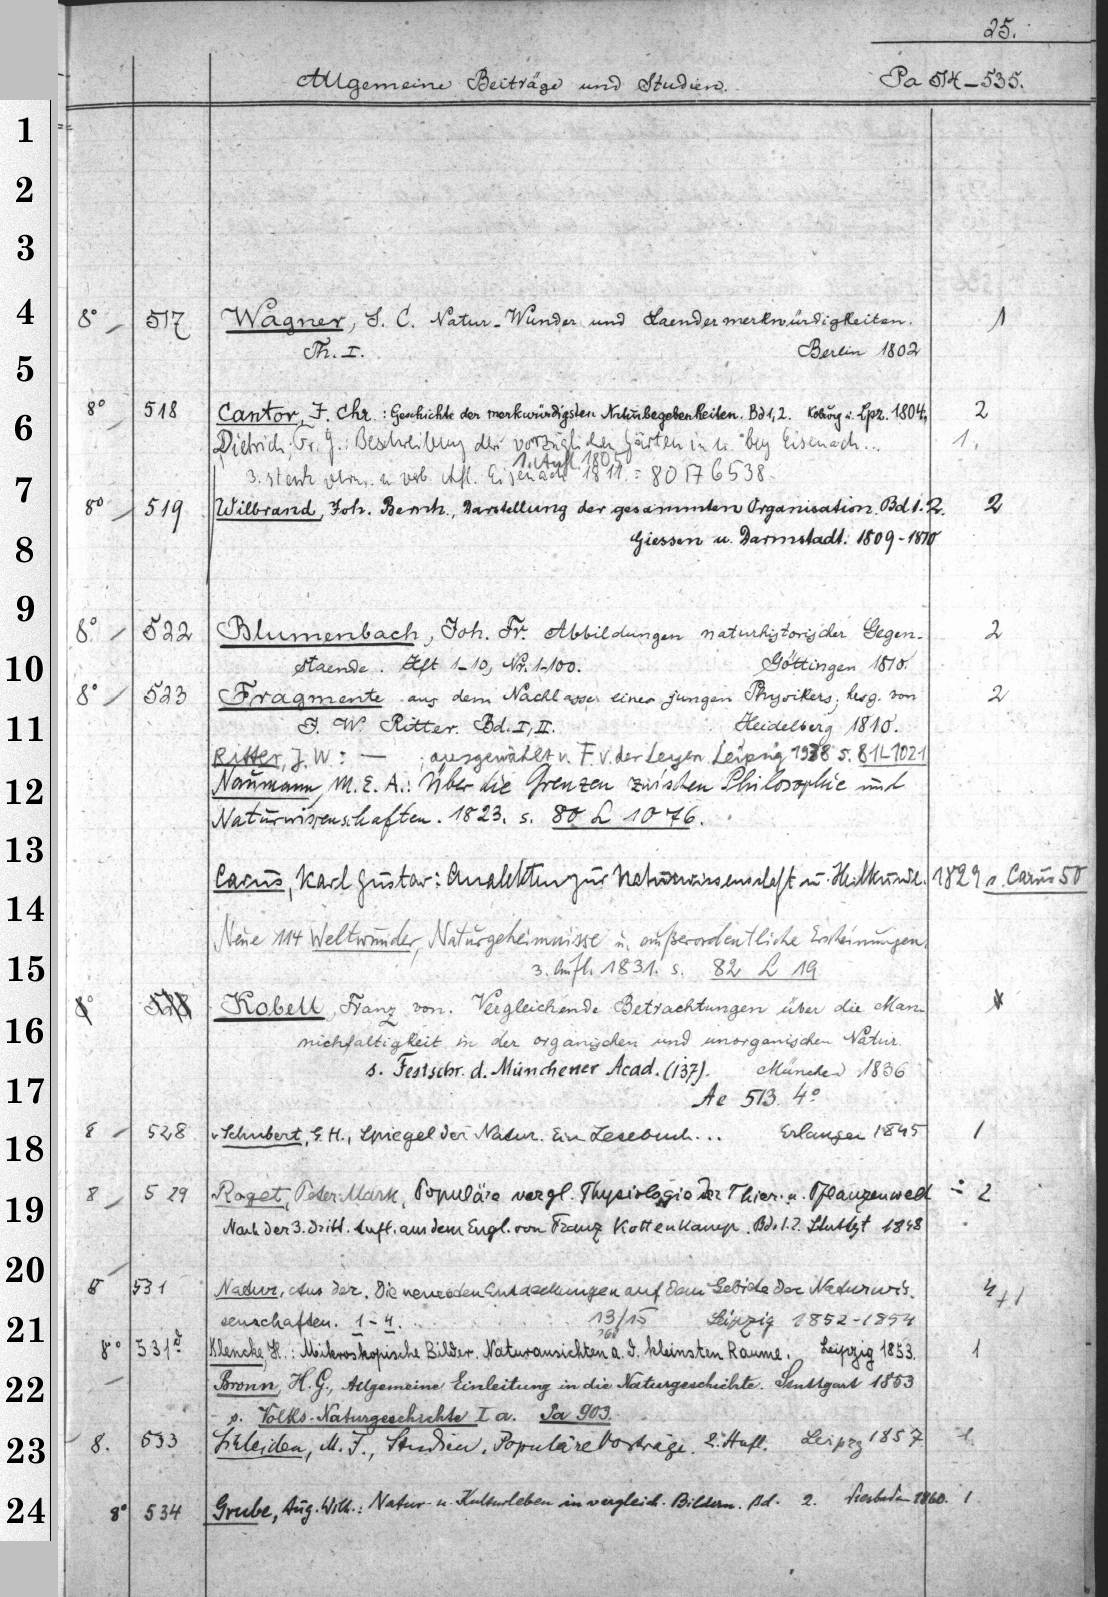 25.
Allgemeine Beiträge und Studien. Pa 514-535.
1
2
3
4
5
6
7
8
9
10
11
12
13
14
15
16
17
18
19
20
21
22
23
24
8° 517 Wagner, S. C. Natur-Wunder und Laendermerkwürdigkeiten. 1
Th. I. Berlin 1802
8° 518 Cantor, J. Chr.: Geschichte der merkwürdigsten Naturbegebenheiten. Bd 1,2. Koburg u. Lpz. 1804. 2
Dietrich, Fr. G.: Beschreibung der vorzüglichen Gärten in u. bey Eisenach... 1.
1. Aufl. 1805
3. stark verm. u. verb. Afl. Eisenach 1811. = 80 176538.
8° 519 Wilbrand, Joh. Bernh., Darstellung der gesammten Organisation. Bd 1.2. 2
Giessen u. Darmstadt. 1809-1810
8° 522 Blumenbach, Joh. Fr. Abbildungen naturhistorischer Gegen- 2
staende. Hft 1-10, Nr. 1-100. Göttingen 1810.
8° 523 Fragmente aus dem Nachlasse eines jungen Physikers; hrsg. von 2
J. W. Ritter. Bd. I, II. Heidelberg 1810.
Ritter, J. W.: — ausgewählt v. F. v. der Leyen. Leipzig 1938 s. 81 L 1021
Naumann, M. E. A.: Über die Grenzen zwischen Philosophie und
Naturwissenschaften. 1823. s. 80 L 1076.
Carus, Karl Gustav: Analekten zur Naturwissenschaft u. Heilkunde. 1829 s. Carus 50
Neue 114 Weltwunder, Naturgeheimnisse u. außerordentliche Erscheinungen.
3. Aufl. 1831. s. 82 L 19
8° 528 Kobell, Franz von. Vergleichende Betrachtungen über die Man-
nichfaltigkeit in der organischen und unorganischen Natur.
s. Festschr. d. Münchener Acad. (137). München 1836
Ae 513 4°
8 528 Schubert, G. H., Spiegel der Natur. Ein Lesebuch... Erlangen 1845 1
8 529 Roget, Peter Mark, Populäre vergl. Physiologie der Thier- u. Pflanzenwelt 2
Nach der 3. Aufl. aus dem Engl. von Franz Kottenkamp. Bd. 1.2. Stuttgt 1848
8 531 Natur, Aus der. Die neuesten Entdeckungen auf dem Gebiete der Naturwis- 4+1
senschaften. 1-4. 13/15 Leipzig 1852-1854
8° 531d Klencke, H.: Mikroskopische Bilder. Naturansichten a. d. kleinsten Raume. Leipzig 1853. 1
Bronn, H. G., Allgemeine Einleitung in die Naturgeschichte. Stuttgart 1853
s. Volks-Naturgeschichte I a. Pa 903.
8. 533 Schleiden, M. J., Studien. Populäre Vorträge. 2. Aufl. Leipzg 1857 1
8° 534 Grube, Aug. Wilh.: Natur- u. Kulturleben in vergleich. Bildern. Bd. 2. Wiesbaden 1860. 1